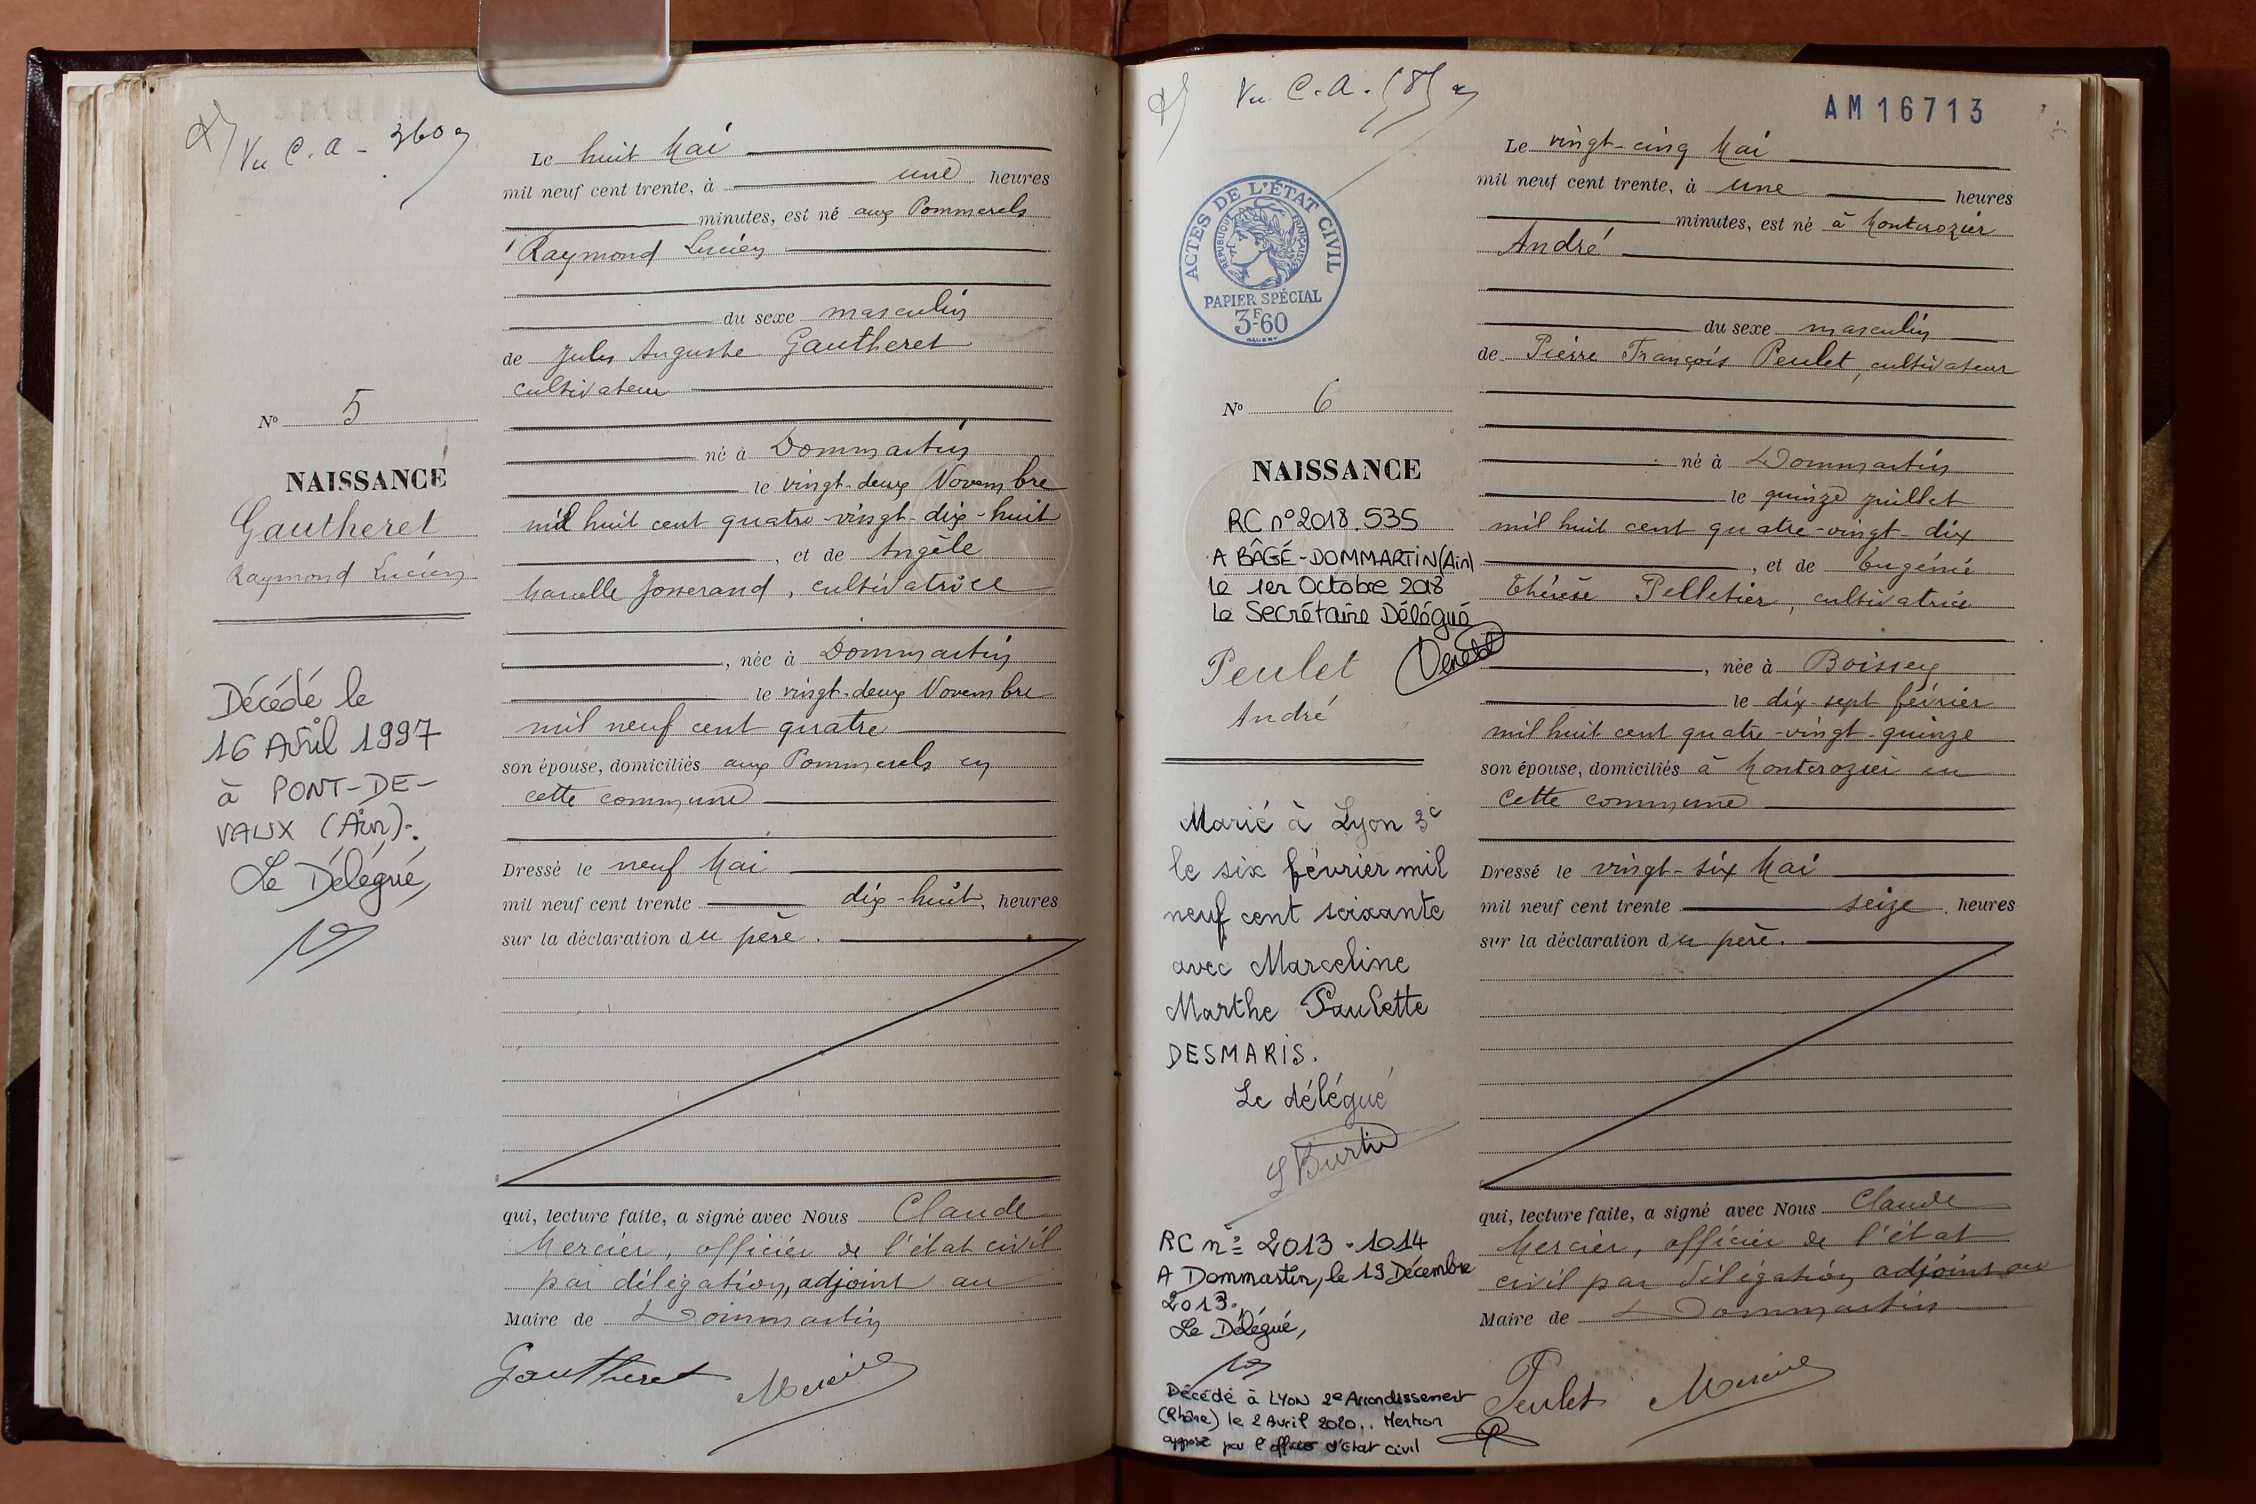 Vu C.A - 360
Le huit Mai
mil neuf cent trente, à une heures
minutes, est né aux Pommerels
Raymond Lucien
du sexe masculin
de Jules Auguste Gautheret
cultivateur
né à Dommartin
le vingt-deux Novembre
mil huit cent quatre-vingt-dix-huit
, et de Angèle
Marcelle Josserand, cultivatrice
, née à Dommartin
le vingt-deux Novembre
mil neuf cent quatre
son épouse, domiciliés aux Pommerels en
cette commune
Dressé le neuf Mai
mil neuf cent trente dix-huit, heures
sur la déclaration du père.
qui, lecture faite, a signé avec Nous Claude
Mercier, officier de l'état civil
par délégation, adjoint au
Maire de Dommartin
Gautheret Mercier
N° 5
NAISSANCE
Gautheret
Raymond Lucien
Décédé le
16 Avril 1997
à PONT-DE-
VAUX (Ain).
Le Délégué,
Vu C.A.
AM16713
ACTES DE L'ÉTAT CIVIL
RÉPUBLIQUE FRANÇAISE
PAPIER SPÉCIAL
3F-60
Le vingt-cinq Mai
mil neuf cent trente, à une heures
minutes, est né à Montcrozier
André
du sexe masculin
de Pierre François Peulet, cultivateur
né à Dommartin
le quinze juillet
mil huit cent quatre-vingt-dix
, et de Eugénie
Thérèse Pelletier, cultivatrice
, née à Boissey
le dix-sept février
mil huit cent quatre-vingt-quinze
son épouse, domiciliés à Montcrozier en
cette commune
Dressé le vingt-six Mai
mil neuf cent trente seize heures
sur la déclaration du père.
qui, lecture faite, a signé avec Nous Claude
Mercier, officier de l'état
civil par délégation adjoint au
Maire de Dommartin
Peulet Mercier
N° 6
NAISSANCE
RC n°2018.535
A BÂGÉ-DOMMARTIN (Ain)
le 1er Octobre 2018
le Secrétaire Délégué
Peulet
André
Marié à Lyon 3e
le six février mil
neuf cent soixante
avec Marceline
Marthe Paulette
DESMARIS.
Le délégué
RC n° 2013-1014
A Dommartin, le 19 Décembre
2013.
Le Délégué,
Décédé à LYON 2e Arrondissement
(Rhône) le 2 Avril 2020.. Mention
apposé par l'officier d'état civil